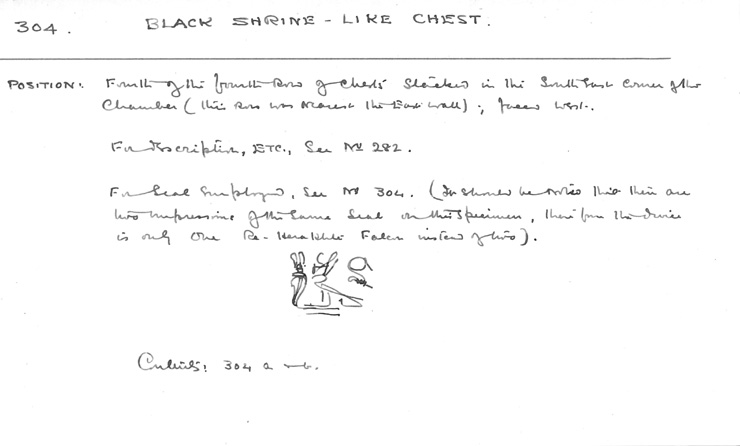 304. BLACK SHRINE-LIKE CHEST.
POSITION: Fourth of the fourth Row of Chests Stacked in the South East Corner of the
Chamber (this Row was nearest the East wall); faces West.
For Description, ETC., See Nº 282.
For Seal Employed, See Nº 304. (It should be noted that there are
two impressions of the same Seal on this Specimen, the device
is only One Re-Herakhte Falcon instead of two).
Contents: 304 a b.